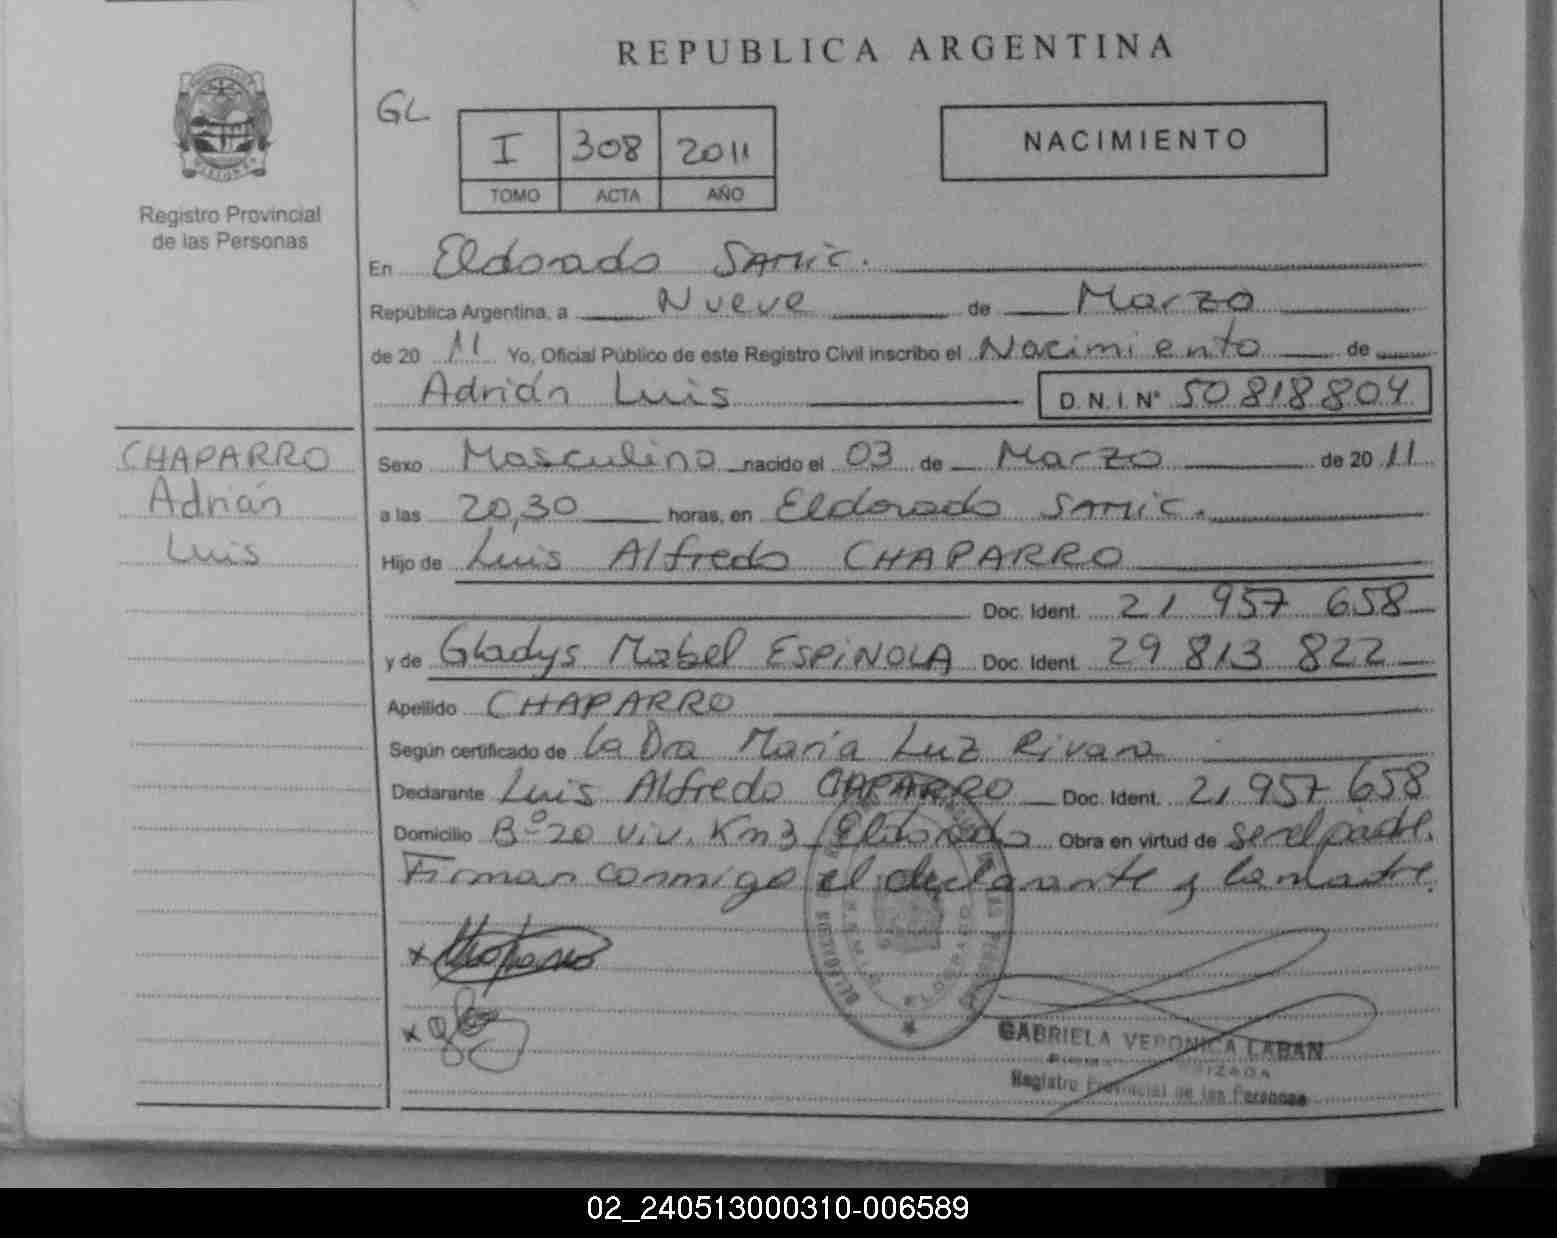 REPUBLICA ARGENTINA
GL
I 308 2011
TOMO ACTA AÑO
NACIMIENTO
Registro Provincial
de las Personas
En Eldorado SAMIC.
República Argentina, a Nueve de Marzo
de 20 11 Yo, Oficial Público de este Registro Civil inscribo el Nacimiento de
Adrián Luis D.N.I. Nº 50 818 804
CHAPARRO
Adrián
Luis
Sexo Masculino nacido el 03 de Marzo de 20 11
a las 20,30 horas, en Eldorado SAMIC.
Hijo de Luis Alfredo CHAPARRO
Doc. Ident. 21 957 658
y de Gladys Mabel ESPINOLA Doc. Ident. 29 813 822
Apellido CHAPARRO
Según certificado de La Dra María Luz Rivara
Declarante Luis Alfredo CHAPARRO Doc. Ident. 21 957 658
Domicilio Bº 20 Viv. Km 3 Eldorado Obra en virtud de ser el padre.
Firman conmigo el declarante y la madre.
GABRIELA VERONICA LABAN
Registro Provincial de las Personas
02_240513000310-006589